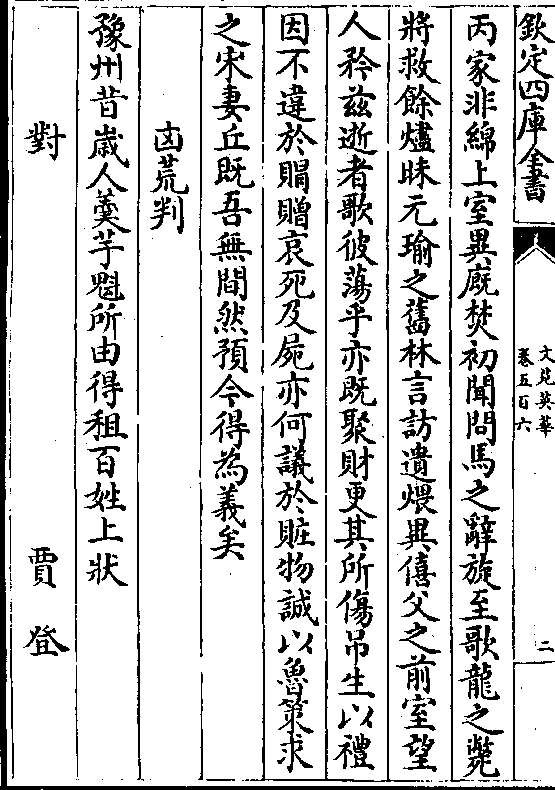 欽定四庫全書
文苑英華
卷五百六
二
丙家非綿上室異廐焚初聞問馬之辭旋至歌龍之斃
將救餘燼昧元瑜之舊林言訪遺煨異僖父之前室望
人矜兹逝者歌彼蕩乎亦既聚財更其所傷吊生以禮
因不違於賵贈哀死及屍亦何議於賍物誠以魯策求
之宋妻丘既吾無間然預今得為義矣
凶荒判
豫州昔歲人羮芋魁所由得租百姓上狀
對
賈登